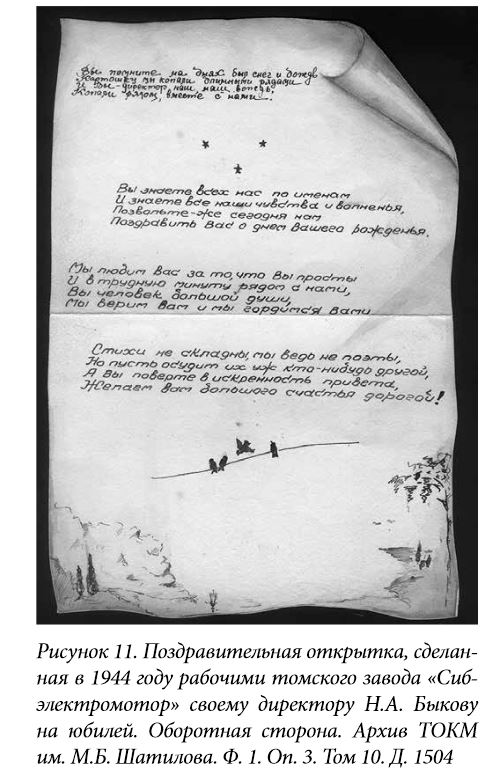 Вы помните на днях был снег и дождь
Картошку мы копали длинными рядами
И Вы-директор, наш, наш вождь,
Копали рядом, вместе с нами.
Вы знаете всех нас по именам
И знаете все наши чувства и волненья,
Позвольте-же сегодня нам
Поздравить Вас с днем Вашего рожденья.
Мы любим вас за то, что Вы просты
И в трудную минуту рядом с нами,
Вы человек большой души,
Мы верим Вам и мы гордимся Вами
Стихи не складны, мы ведь не поэты,
Но пусть осудит их уж кто-нибудь другой,
А Вы поверьте в искренность привета,
Желаем вам большого счастья дорогой!
Рисунок 11. Поздравительная открытка, сделан-
ная в 1944 году рабочими томского завода «Сиб-
электромотор» своему директору Н.А. Быкову
на юбилей. Оборотная сторона. Архив ТОКМ
им. М.Б. Шатилова. Ф. 1. Оп. 3. Том 10. Д. 1504